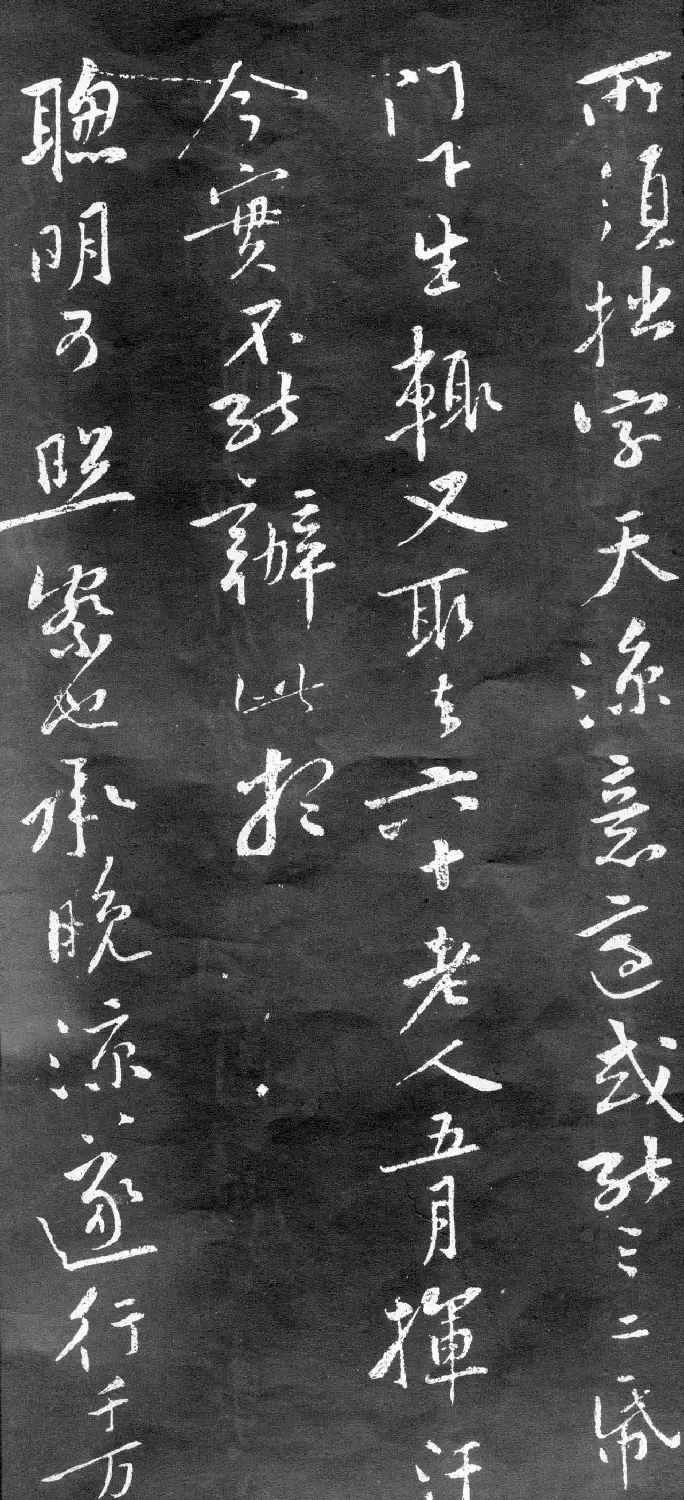 所須拙字天涼意適或能三二紙
門下生輒又取去六十老人五月揮汗
今實不能辦此想
聰明可照察也承晚涼遂行千万